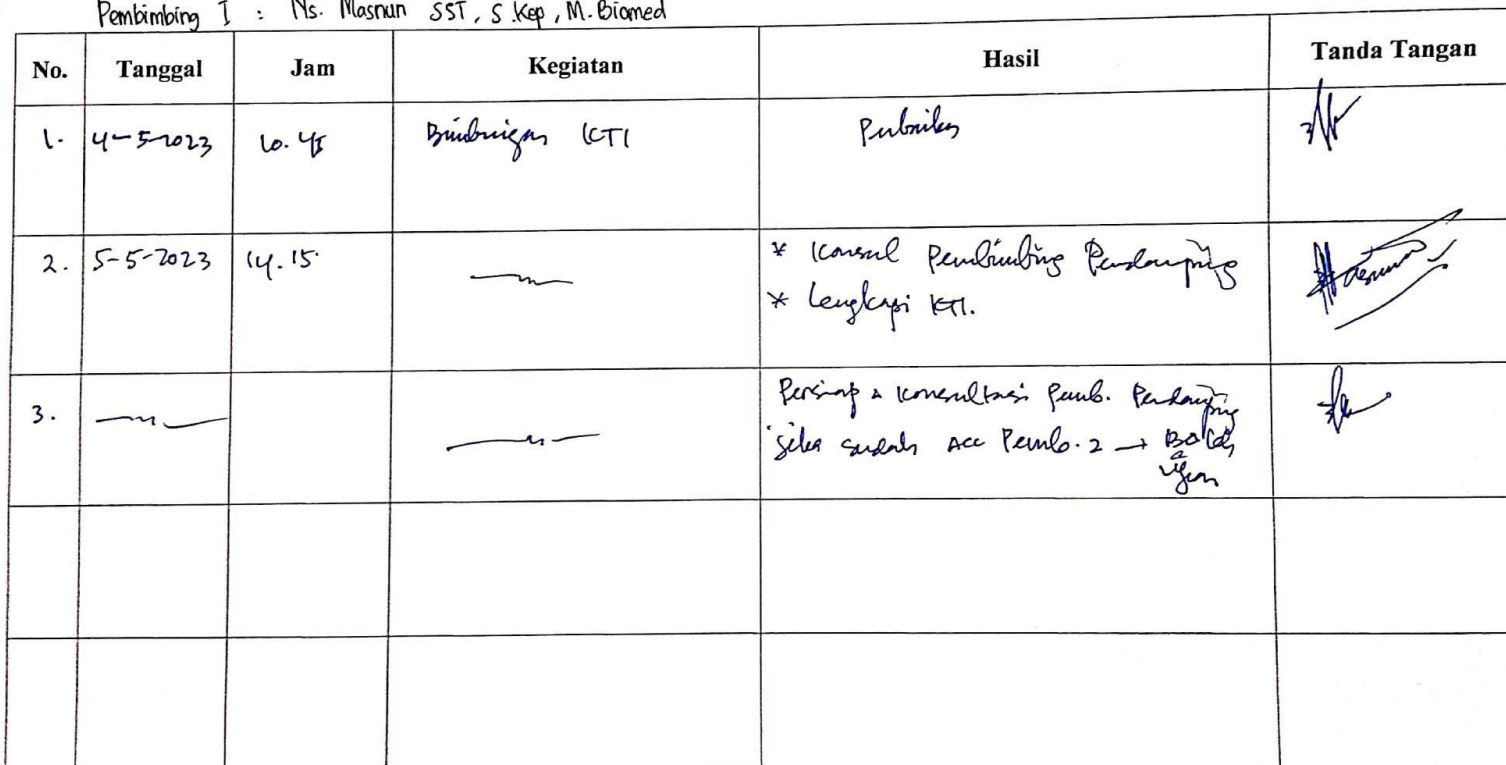 Pembimbing I : Ns. Masnun SST, S.Kep, M.Biomed
No. Tanggal Jam Kegiatan Hasil Tanda Tangan
1. 4-5-2023 10.45 Bimbingan KTI Perbaikan
2. 5-5-2023 14.15 * Konsul Pembimbing Pendamping
* Lengkapi KTI.
3. Konsultasi Pemb. Pendamping
jika sudah Acc Pemb. 2 →